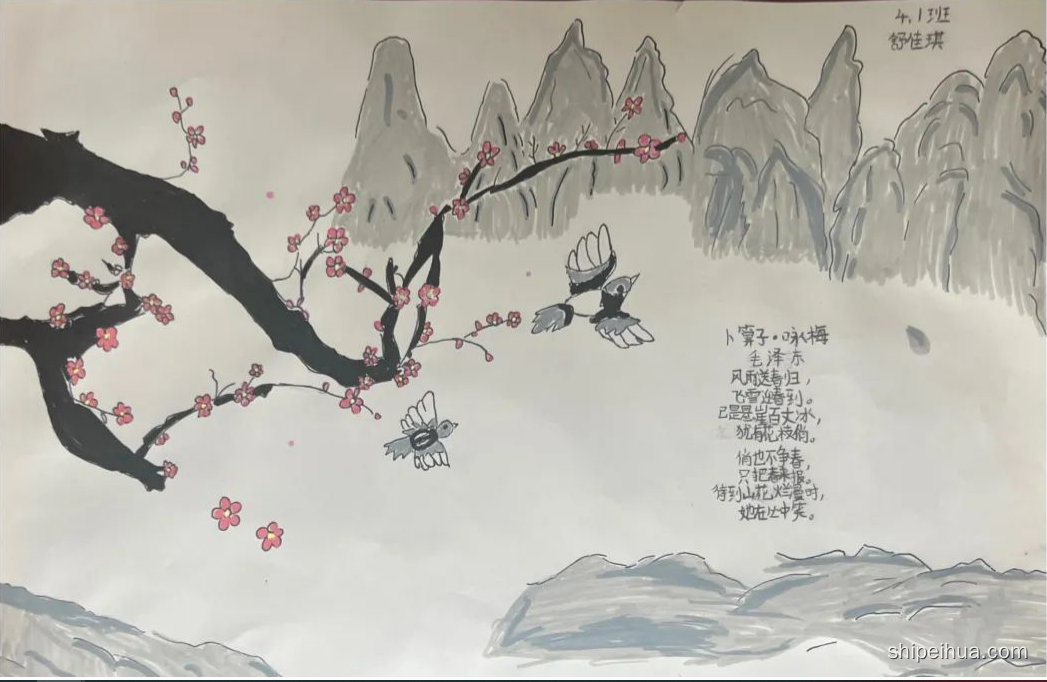 4.1班
舒佳琪
卜算子·咏梅
毛泽东
风雨送春归，
飞雪迎春到。
已是悬崖百丈冰，
犹有花枝俏。
俏也不争春，
只把春来报。
待到山花烂漫时，
她在丛中笑。
shipeihua.com